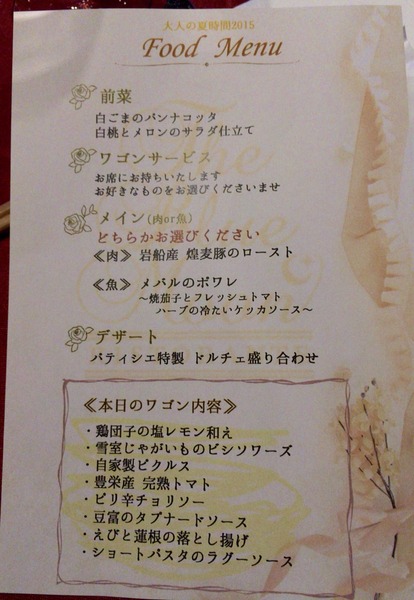 大人の夏時間2015
Food Menu
前菜
白ごまのパンナコッタ
白桃とメロンのサラダ仕立て
ワゴンサービス
お席にお持ちいたします
お好きなものをお選びくださいませ
メイン(肉or魚)
どちらかお選びください
≪肉≫ 岩船産 煌麦豚のロースト
≪魚≫ メバルのポワレ
～焼茄子とフレッシュトマト
ハーブの冷たいケッカソース～
デザート
パティシエ特製 ドルチェ盛り合わせ
≪本日のワゴン内容≫
・鶏団子の塩レモン和え
・雪室じゃがいものビシソワーズ
・自家製ピクルス
・豊栄産 完熟トマト
・ピリ辛チョリソー
・豆富のタプナードソース
・えびと蓮根の落とし揚げ
・ショートパスタのラグーソース